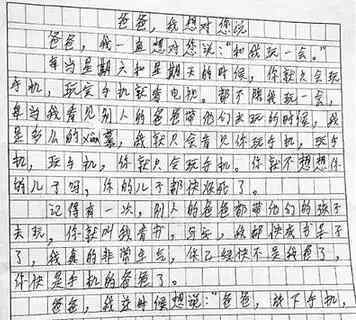 爸爸,我想对您说
爸爸,我一直想对您说:“和我玩一会。”
每当星期六和星期天的时候,你就只会玩
手机,玩完手机就看电视。都不陪我玩一会,
每当我看见别人的爸爸带他们去玩的时候,我
是多么的xiàn慕,我就只会看见你玩手机,玩手
机,玩手机,你就只会玩手机。你就不想想你
的儿子吗,你的儿子都快疯了。
记得有一次,别人的爸爸都带他们的孩子
去玩,你就叫我看书,写字,我都快成书呆子
了,我真的非常生气,你已经快不是我爸了,
你快是手机的爸爸了。
爸爸,我这时候想说:“爸爸,放下手机,